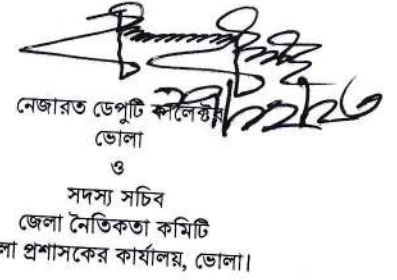 নেজারত ডেপুটি কালেক্টর
ভোলা
ও
সদস্য সচিব
জেলা নৈতিকতা কমিটি
লা প্রশাসকের কার্যালয়, ভোলা।